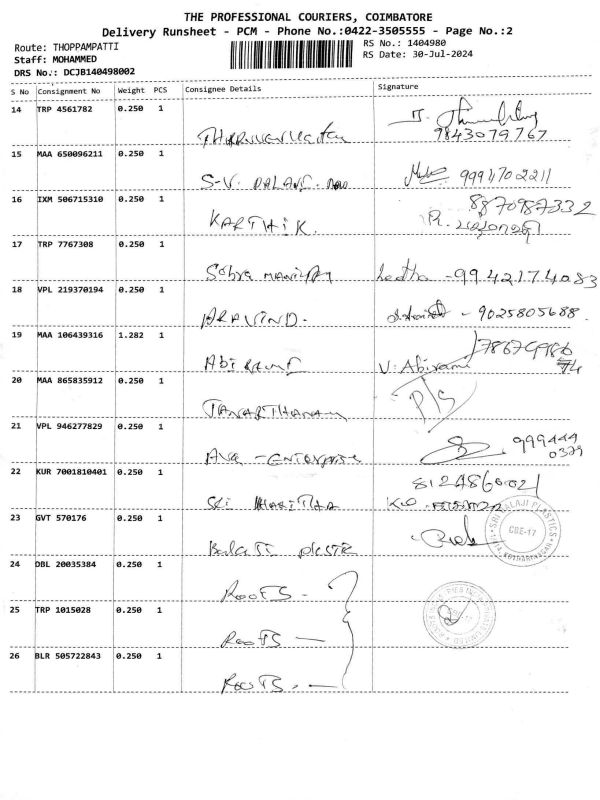 THE PROFESSIONAL COURIERS, COIMBATORE
Delivery Runsheet - PCM - Phone No.:0422-3505555 - Page No.:2
Route: THOPPAMPATTI
Staff: MOHAMMED
DRS No.: DCJB140498002
RS No.: 1404980
RS Date: 30-Jul-2024
S No Consignment No Weight PCS Consignee Details Signature
14 TRP 4561782 0.250 1
9843079767
15 MAA 650096211 0.250 1
S-V. 9991702211
16 IXM 506715310 0.250 1
KARTHIK. 8870987332
17 TRP 7767308 0.250 1
Sobya - 9942174083
18 VPL 219370194 0.250 1
ARAVIND. - 9025805688.
19 MAA 106439316 1.282 1
V. Abirami
20 MAA 865835912 0.250 1
JANARTHANAN P/S
21 VPL 946277829 0.250 1
- Enterprise 999444
0329
22 KUR 7001810401 0.250 1
Sri HARITHA
23 GVT 570176 0.250 1
Balaji plastic
SRI BALAJI PLASTICS
CBE-17
24 DBL 20035384 0.250 1
RooTS -
25 TRP 1015028 0.250 1
RooTS —
26 BLR 505722843 0.250 1
RooTS. —